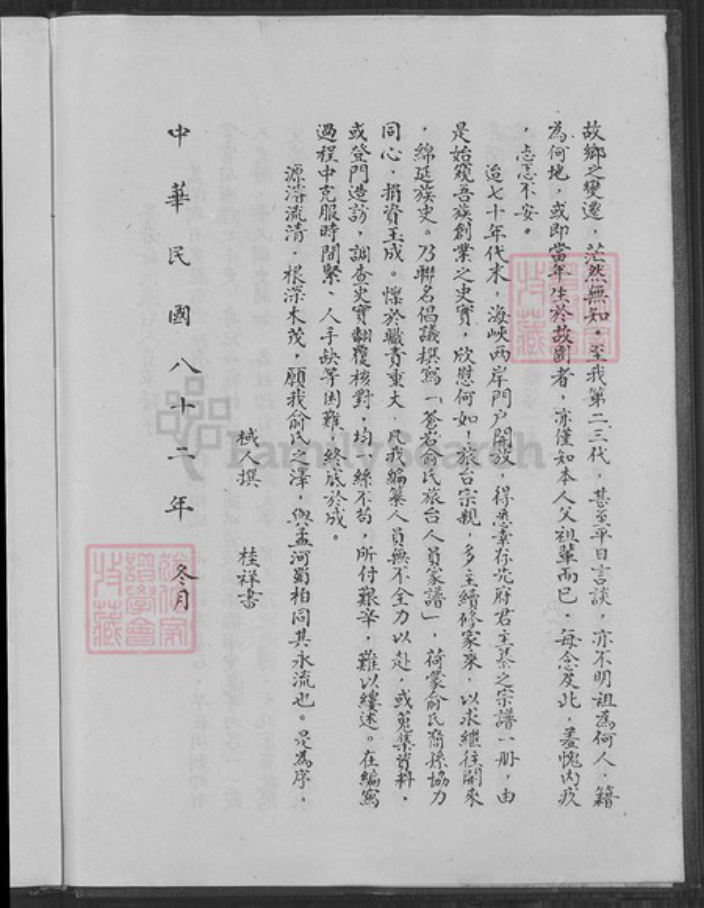 故鄉之變遷，茫然無知。至我第二三代，甚至平日言談，亦不明祖為何人，籍
為何地，或即當年生於故園者，亦僅知本人父祖輩而已。每念及此，羞愧內疚
，忐忑不安。
迨七十年代末，海峽兩岸門戶開放，得悉業存先府君主纂之宗譜一册，由
是始窺吾族創業之史實，欣慰何如！旅台宗親，多主續修家乘，以求繼往開來
，綿延族史。乃聯名倡議撰寫「蒼岩俞氏旅台人員家譜」，荷蒙俞氏裔孫協力
同心，捐資玉成。懍於職責重大，凡我編纂人員無不全力以赴，或蒐集資料，
或登門造訪，調查史實翻覆核對，均一絲不苟，所付艱辛，難以縷述。在編寫
過程中克服時間緊、人手缺等困難，終底於成。
源濬流清，根深木茂，願我俞氏之澤，與孟河蜀柏同其永流也。是為序。
棫人撰　桂祥書
中華民國八十二年　冬月
FamilySearch